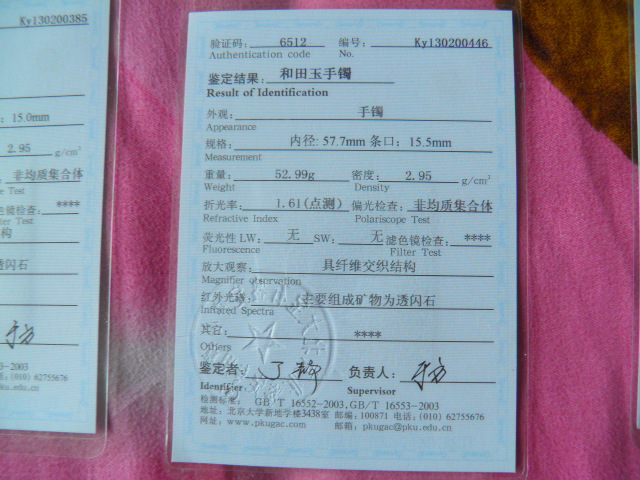 Ky130200385
：15.0mm
2.95 g/cm³
非均质集合体
Test
滤色镜检查：****
Filter Test
构
透闪石
-2003
：(010) 62755676
ku.edu.cn
验证码：6512 编号：Ky130200446
Authentication code No.
鉴定结果：和田玉手镯
Result of Identification
外观：手镯
Appearance
规格：内径：57.7mm 条口：15.5mm
Measurement
重量：52.99g 密度：2.95 g/cm³
Weight Density
折光率：1.61(点测) 偏光检查：非均质集合体
Refractive Index Polariscope Test
荧光性 LW：无 SW：无 滤色镜检查：****
Fluorescence Filter Test
放大观察：具纤维交织结构
Magnifier observation
红外光谱：主要组成矿物为透闪石
Infrared Spectra
其它：****
Others
鉴定者： 负责人：
Identifier Supervisor
检测标准： GB/T 16552-2003,GB/T 16553-2003
地址：北京大学新地学楼3438室 邮编：100871 电话：(010) 62755676
网址：www.pkugac.com 邮箱：pkugac@pku.edu.cn